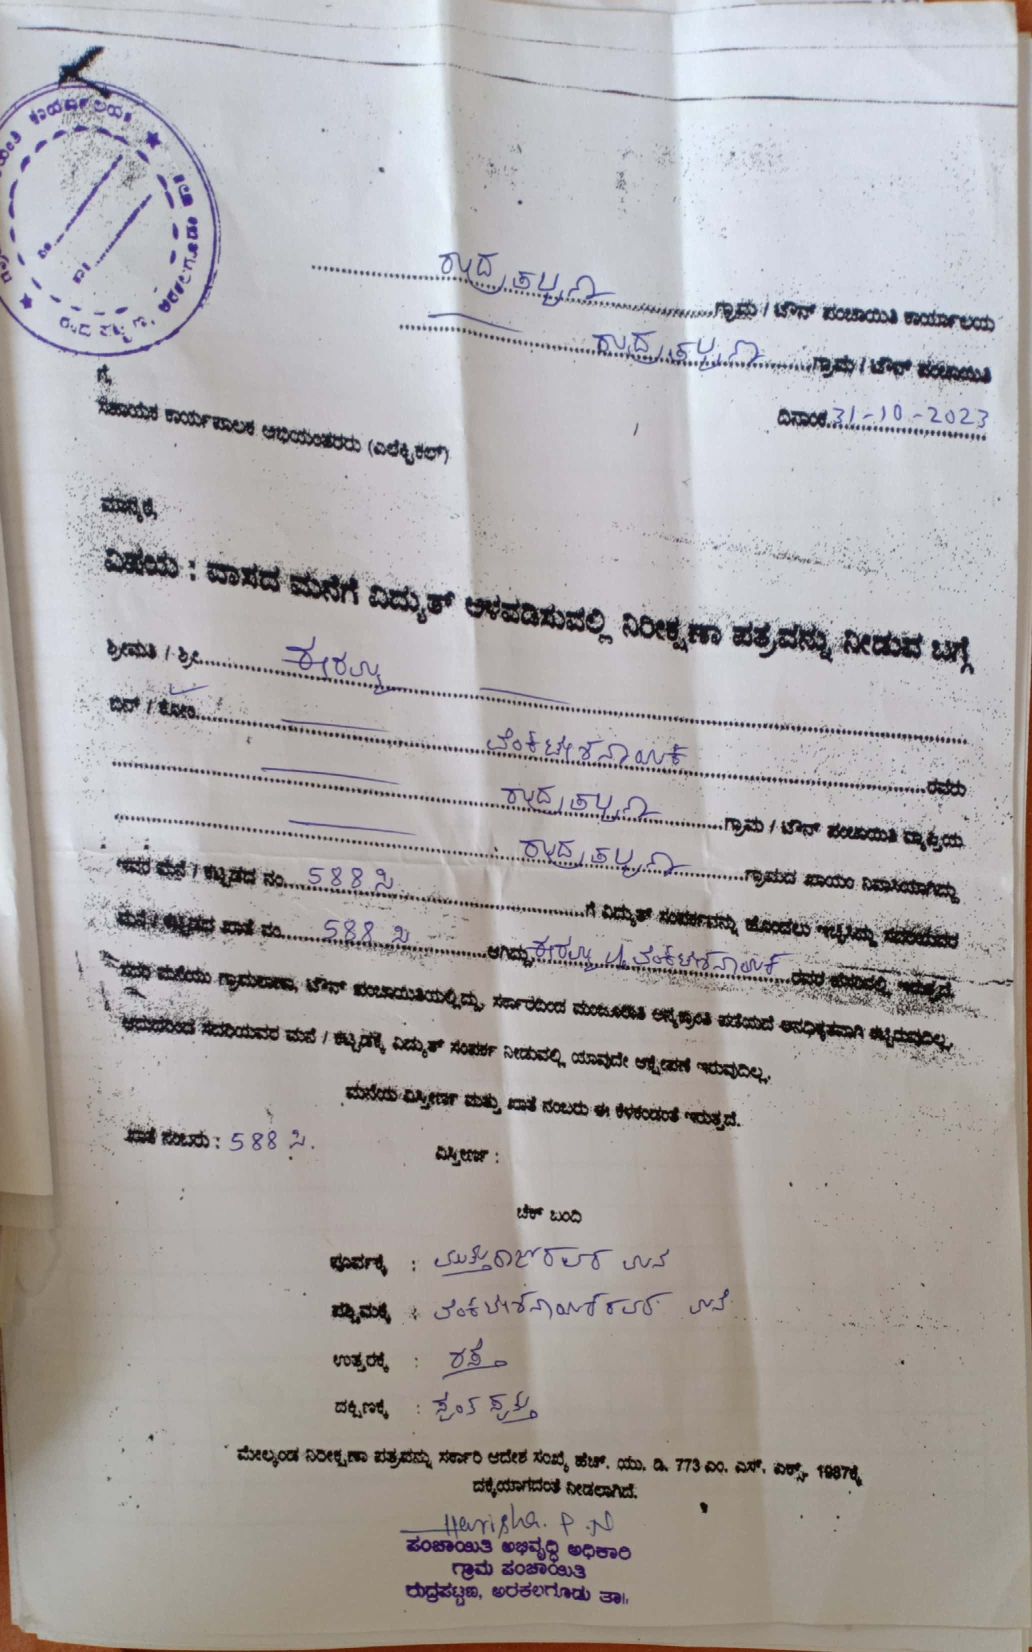 ರುದ್ರಪಟ್ಟಣ ಗ್ರಾಮ / ಟೌನ್ ಪಂಚಾಯಿತಿ ಕಾರ್ಯಾಲಯ
ರುದ್ರಪಟ್ಟಣ ಗ್ರಾಮ / ಟೌನ್ ಪಂಚಾಯಿತಿ
ದಿನಾಂಕ 31-10-2023
ಗೆ,
ಸಹಾಯಕ ಕಾರ್ಯಪಾಲಕ ಅಭಿಯಂತರರು (ಎಲೆಕ್ಟ್ರಿಕಲ್)
ಮಾನ್ಯರೆ,
ವಿಷಯ : ವಾಸದ ಮನೆಗೆ ವಿದ್ಯುತ್ ಅಳವಡಿಸುವಲ್ಲಿ ನಿರೀಕ್ಷಣಾ ಪತ್ರವನ್ನು ನೀಡುವ ಬಗ್ಗೆ
ಶ್ರೀಮತಿ / ಶ್ರೀ
ಬಿನ್ / ಕೋಂ ವೆಂಕಟೇಶನಾಯಕ ರವರು
ರುದ್ರಪಟ್ಟಣ ಗ್ರಾಮ / ಟೌನ್ ಪಂಚಾಯಿತಿ ವ್ಯಾಪ್ತಿಯ
ರುದ್ರಪಟ್ಟಣ ಗ್ರಾಮದ ಖಾಯಂ ನಿವಾಸಿಯಾಗಿದ್ದು
ಇವರ ಮನೆ / ಕಟ್ಟಡದ ನಂ. 588 ಸಿ ಗೆ ವಿದ್ಯುತ್ ಸಂಪರ್ಕವನ್ನು ಹೊಂದಲು ಇಚ್ಛಿಸಿದ್ದು ಸದರಿಯವರ
ಮನೆ / ಕಟ್ಟಡದ ಖಾತೆ ನಂ. 588 ಸಿ ಆಗಿದ್ದು ವೆಂಕಟೇಶನಾಯಕ ರವರ ಹೆಸರಿನಲ್ಲಿ ಇರುತ್ತದೆ.
ಸದರಿ ಮನೆಯು ಗ್ರಾಮಠಾಣಾ, ಟೌನ್ ಪಂಚಾಯಿತಿಯಲ್ಲಿದ್ದು, ಸರ್ಕಾರದಿಂದ ಮಂಜೂರಾತಿ ಅನ್ಯಕ್ರಾಂತಿ ಪಡೆಯದೆ ಅನಧಿಕೃತವಾಗಿ ಕಟ್ಟಿರುವುದಿಲ್ಲ,
ಆದುದರಿಂದ ಸದರಿಯವರ ಮನೆ / ಕಟ್ಟಡಕ್ಕೆ ವಿದ್ಯುತ್ ಸಂಪರ್ಕ ನೀಡುವಲ್ಲಿ ಯಾವುದೇ ಆಕ್ಷೇಪಣೆ ಇರುವುದಿಲ್ಲ,
ಮನೆಯ ವಿಸ್ತೀರ್ಣ ಮತ್ತು ಖಾತೆ ನಂಬರು ಈ ಕೆಳಕಂಡಂತೆ ಇರುತ್ತದೆ.
ಖಾತೆ ನಂಬರು : 588 ಸಿ. ವಿಸ್ತೀರ್ಣ :
ಚೆಕ್ ಬಂದಿ
ಪೂರ್ವಕ್ಕೆ : ಮುತ್ತುರಾಜರವರ ಮನೆ
ಪಶ್ಚಿಮಕ್ಕೆ : ವೆಂಕಟೇಶನಾಯಕರವರ ಮನೆ
ಉತ್ತರಕ್ಕೆ : ರಸ್ತೆ
ದಕ್ಷಿಣಕ್ಕೆ : ಸ್ವಂತ ಸ್ವತ್ತು
ಮೇಲ್ಕಂಡ ನಿರೀಕ್ಷಣಾ ಪತ್ರವನ್ನು ಸರ್ಕಾರಿ ಆದೇಶ ಸಂಖ್ಯೆ ಹೆಚ್. ಯು. ಡಿ. 773 ಎಂ. ಎಸ್. ಎಕ್ಸ್. 1987ಕ್ಕೆ
ದಕ್ಕೆಯಾಗದಂತೆ ನೀಡಲಾಗಿದೆ.
Harisha. P.N
ಪಂಚಾಯಿತಿ ಅಭಿವೃದ್ಧಿ ಅಧಿಕಾರಿ
ಗ್ರಾಮ ಪಂಚಾಯಿತಿ
ರುದ್ರಪಟ್ಟಣ, ಅರಕಲಗೂಡು ತಾ||.